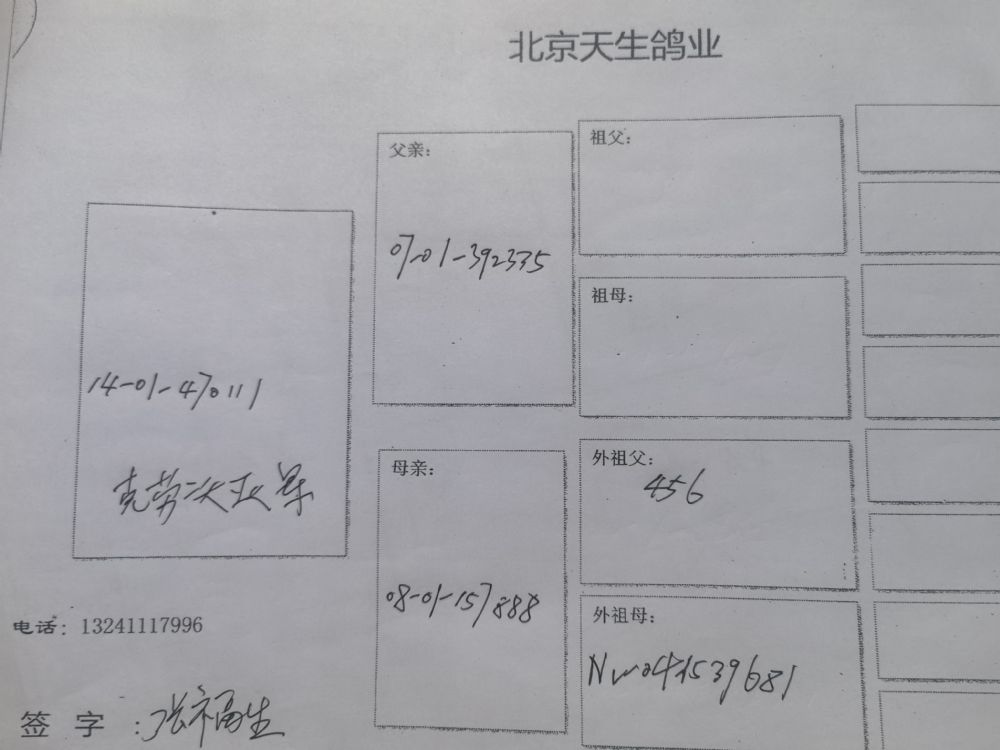 北京天生鸽业
14-01-470111
克劳
父亲：
07-01-392335
母亲：
08-01-157888
祖父：
祖母：
外祖父：
456
外祖母：
电话：13241117996
签 字 ：张福生